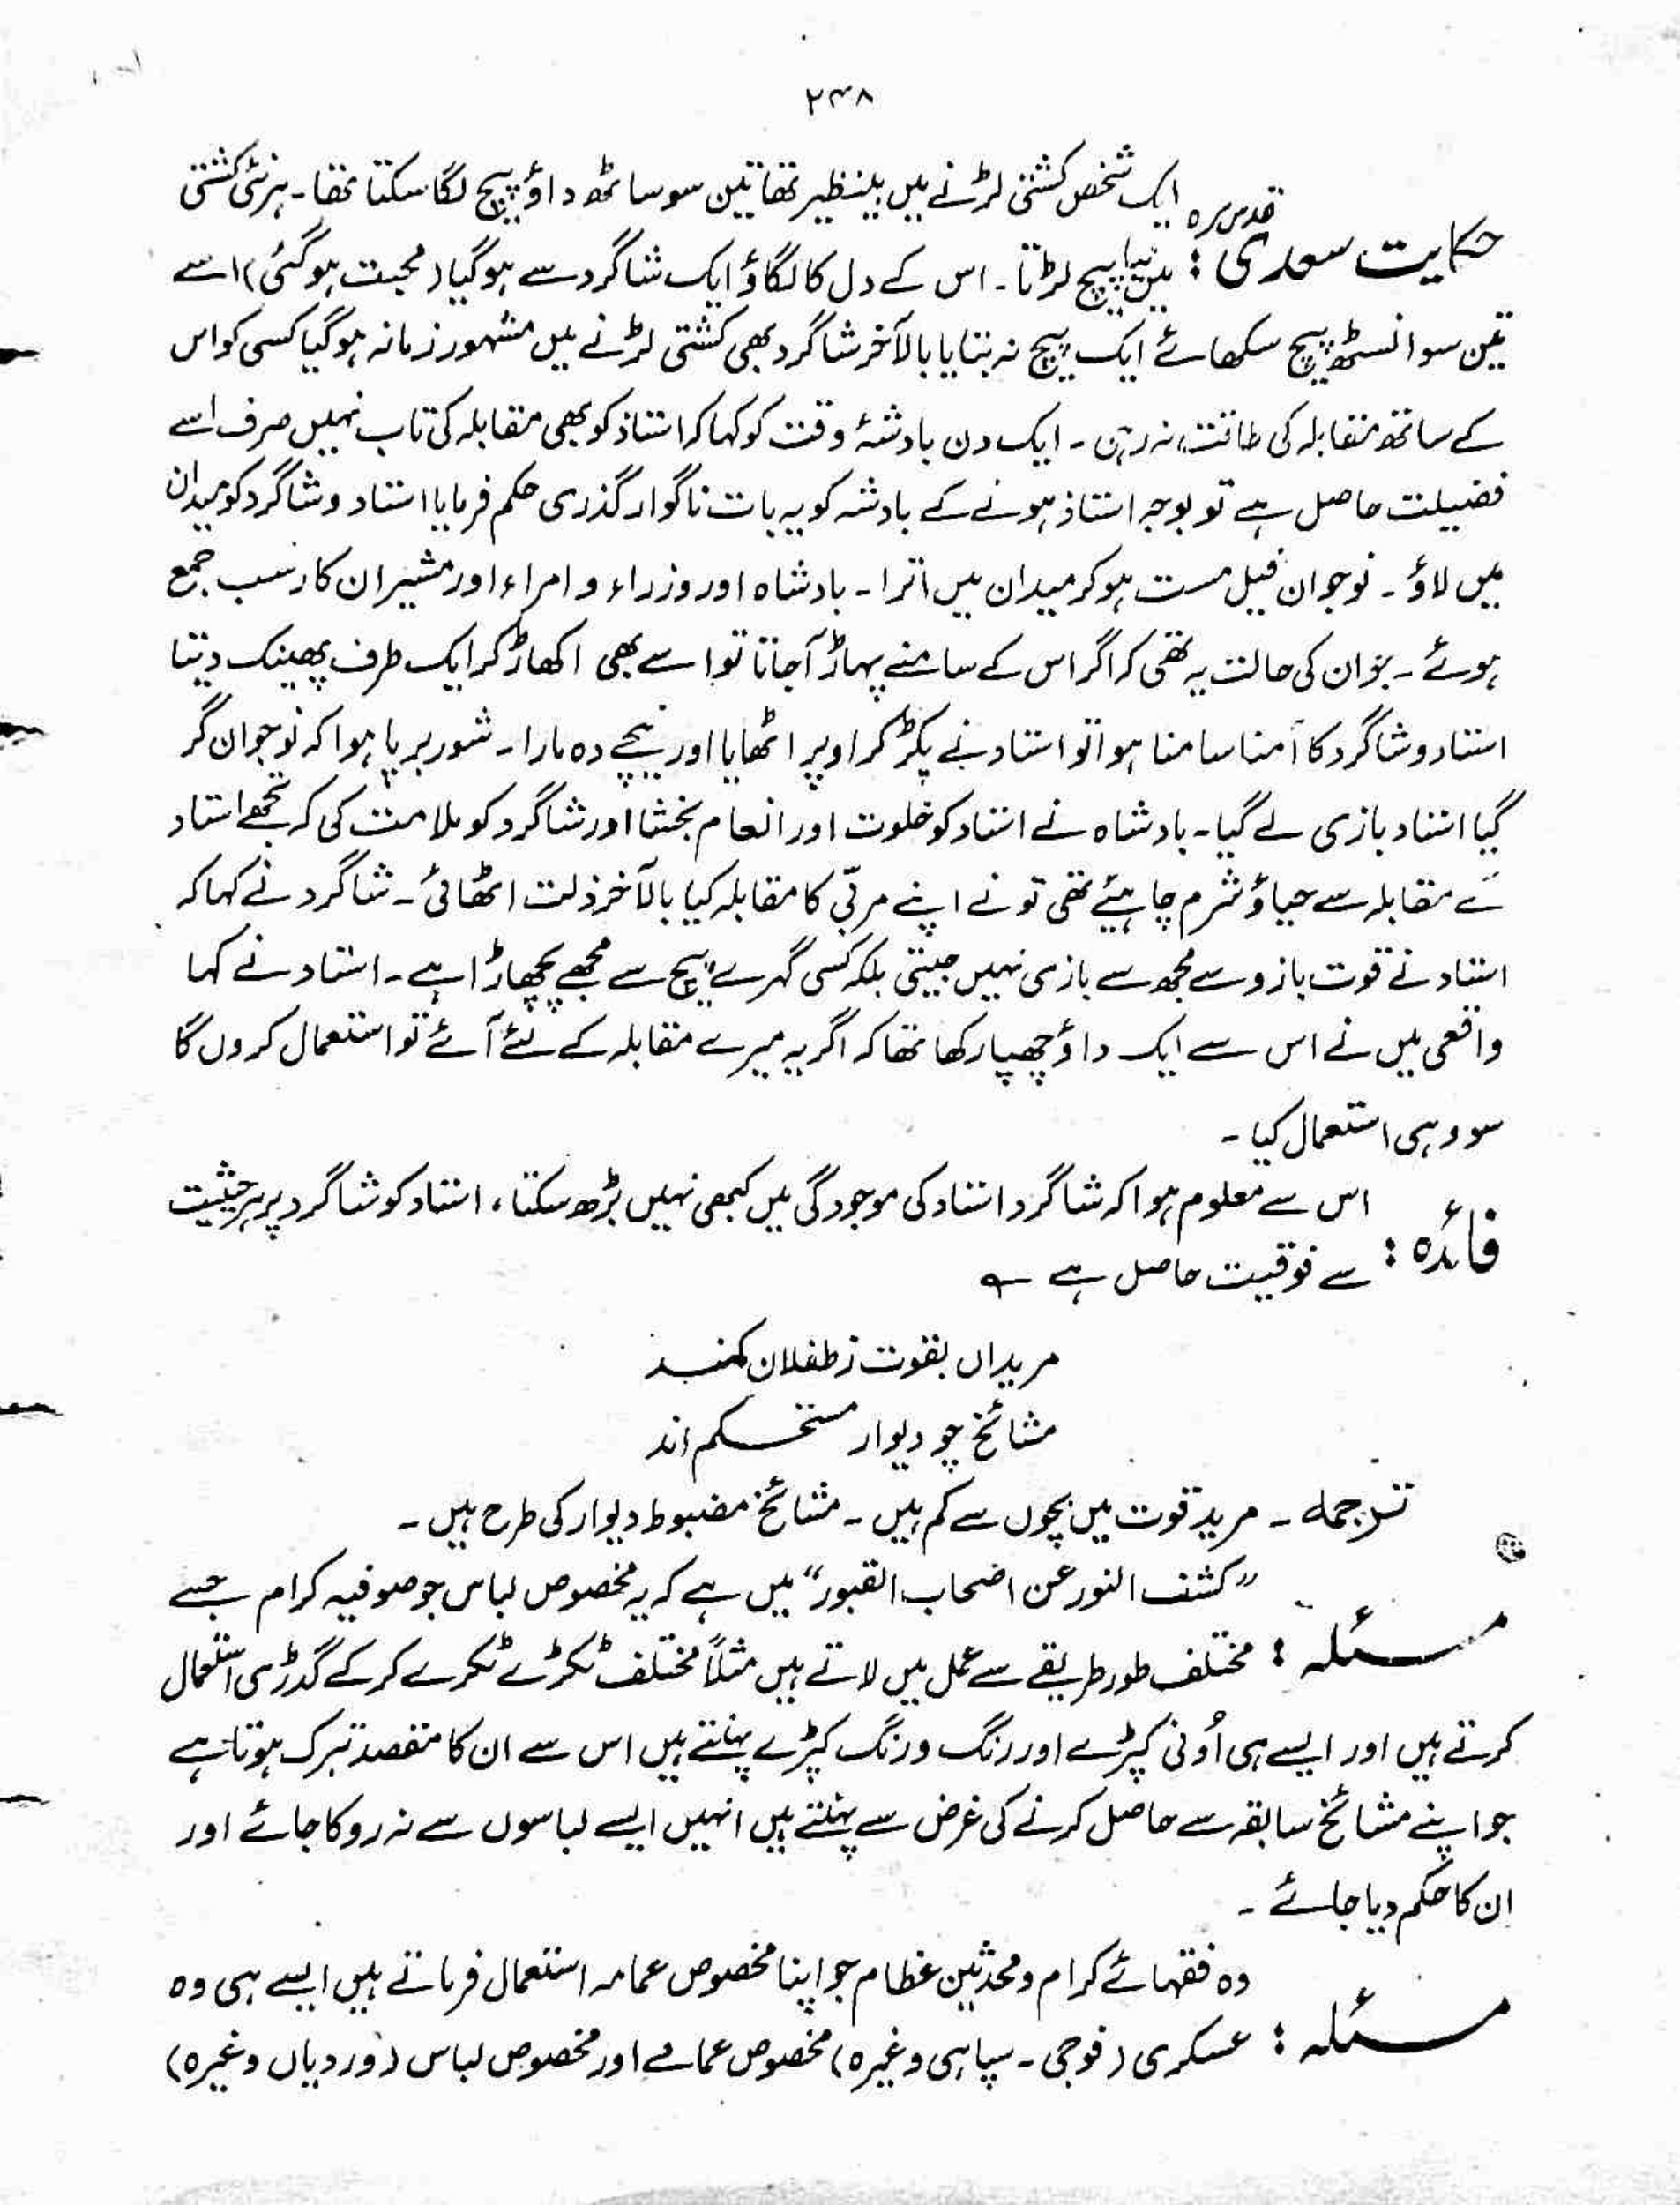 ۲۳۸
حکایت سعدی قدس سرہ : ایک شخص کشتی لڑنے میں بینظیر تھا تین سو ساٹھ داؤ پیچ لگا سکتا تھا۔ ہر نئی کشتی
میں نیا پیچ لڑتا۔ اس کے دل کا لگاؤ ایک شاگرد سے ہوگیا (محبت ہوگئی) اسے
تین سو انسٹھ پیچ سکھائے ایک پیچ نہ بتایا بالآخر شاگرد بھی کشتی لڑنے میں مشہور زمانہ ہوگیا کسی کو اس
کے ساتھ مقابلہ کی طاقت نہ رہی۔ ایک دن بادشۂ وقت کو کہا کہ استاذ کو بھی مقابلہ کی تاب نہیں صرف اسے
فضیلت حاصل ہے تو بوجہ استاذ ہونے کے بادشہ کو یہ بات ناگوار گذری حکم فرمایا استاد و شاگرد کو میدان
میں لاؤ۔ نوجوان فیل مست ہوکر میدان میں اترا۔ بادشاہ اور وزراء و امراء اور مشیران کار سب جمع
ہوئے۔ جوان کی حالت یہ تھی کہ اگر اس کے سامنے پہاڑ آجاتا تو اسے بھی اکھاڑ کر ایک طرف پھینک دیتا
استاد و شاگرد کا آمنا سامنا ہوا تو استاد نے پکڑ کر اوپر اٹھایا اور نیچے دہ مارا۔ شور برپا ہوا کہ نوجوان گر
گیا استاد بازی لے گیا۔ بادشاہ نے استاد کو خلوت اور انعام بخشا اور شاگرد کو ملامت کی کہ تجھے استاد
کے مقابلہ سے حیاؤ شرم چاہیئے تھی تو نے اپنے مربّی کا مقابلہ کیا بالآخر ذلت اٹھائی۔ شاگرد نے کہا کہ
استاد نے قوت بازو سے مجھ سے بازی نہیں جیتی بلکہ کسی گہرے پیچ سے مجھے پچھاڑا ہے۔ استاد نے کہا
واقعی میں نے اس سے ایک داؤ چھپا رکھا تھا کہ اگر یہ میرے مقابلہ کے لئے آئے تو استعمال کروں گا
سو وہی استعمال کیا۔
فائدہ : اس سے معلوم ہوا کہ شاگرد استاد کی موجودگی میں کبھی نہیں بڑھ سکتا، استاد کو شاگرد پر ہر حیثیت
سے فوقیت حاصل ہے ؎
مریداں بقوت ز طفلان کمند
مشائخ چو دیوار مستحکم اند
ترجمہ۔ مرید قوت میں بچوں سے کم ہیں۔ مشائخ مضبوط دیوار کی طرح ہیں۔
مسئلہ : ”کشف النور عن اضحاب القبور“ میں ہے کہ یہ مخصوص لباس جو صوفیہ کرام جسے
مختلف طور طریقے سے عمل میں لاتے ہیں مثلاً مختلف ٹکڑے ٹکرے کرکے گدڑی استعمال
کرتے ہیں اور ایسے ہی اُونی کپڑے اور رنگ و رنگ کپڑے پہنتے ہیں اس سے ان کا مقصد تبرک ہوتا ہے
جو اپنے مشائخ سابقہ سے حاصل کرنے کی غرض سے پہنتے ہیں انہیں ایسے لباسوں سے نہ روکا جائے اور
ان کا حکم دیا جائے۔
مسئلہ : وہ فقہائے کرام و محدثین عظام جو اپنا مخصوص عمامہ استعمال فرماتے ہیں ایسے ہی وہ
عسکری (فوجی۔ سپاہی وغیرہ) مخصوص عمامے اور مخصوص لباس (وردیاں وغیرہ)